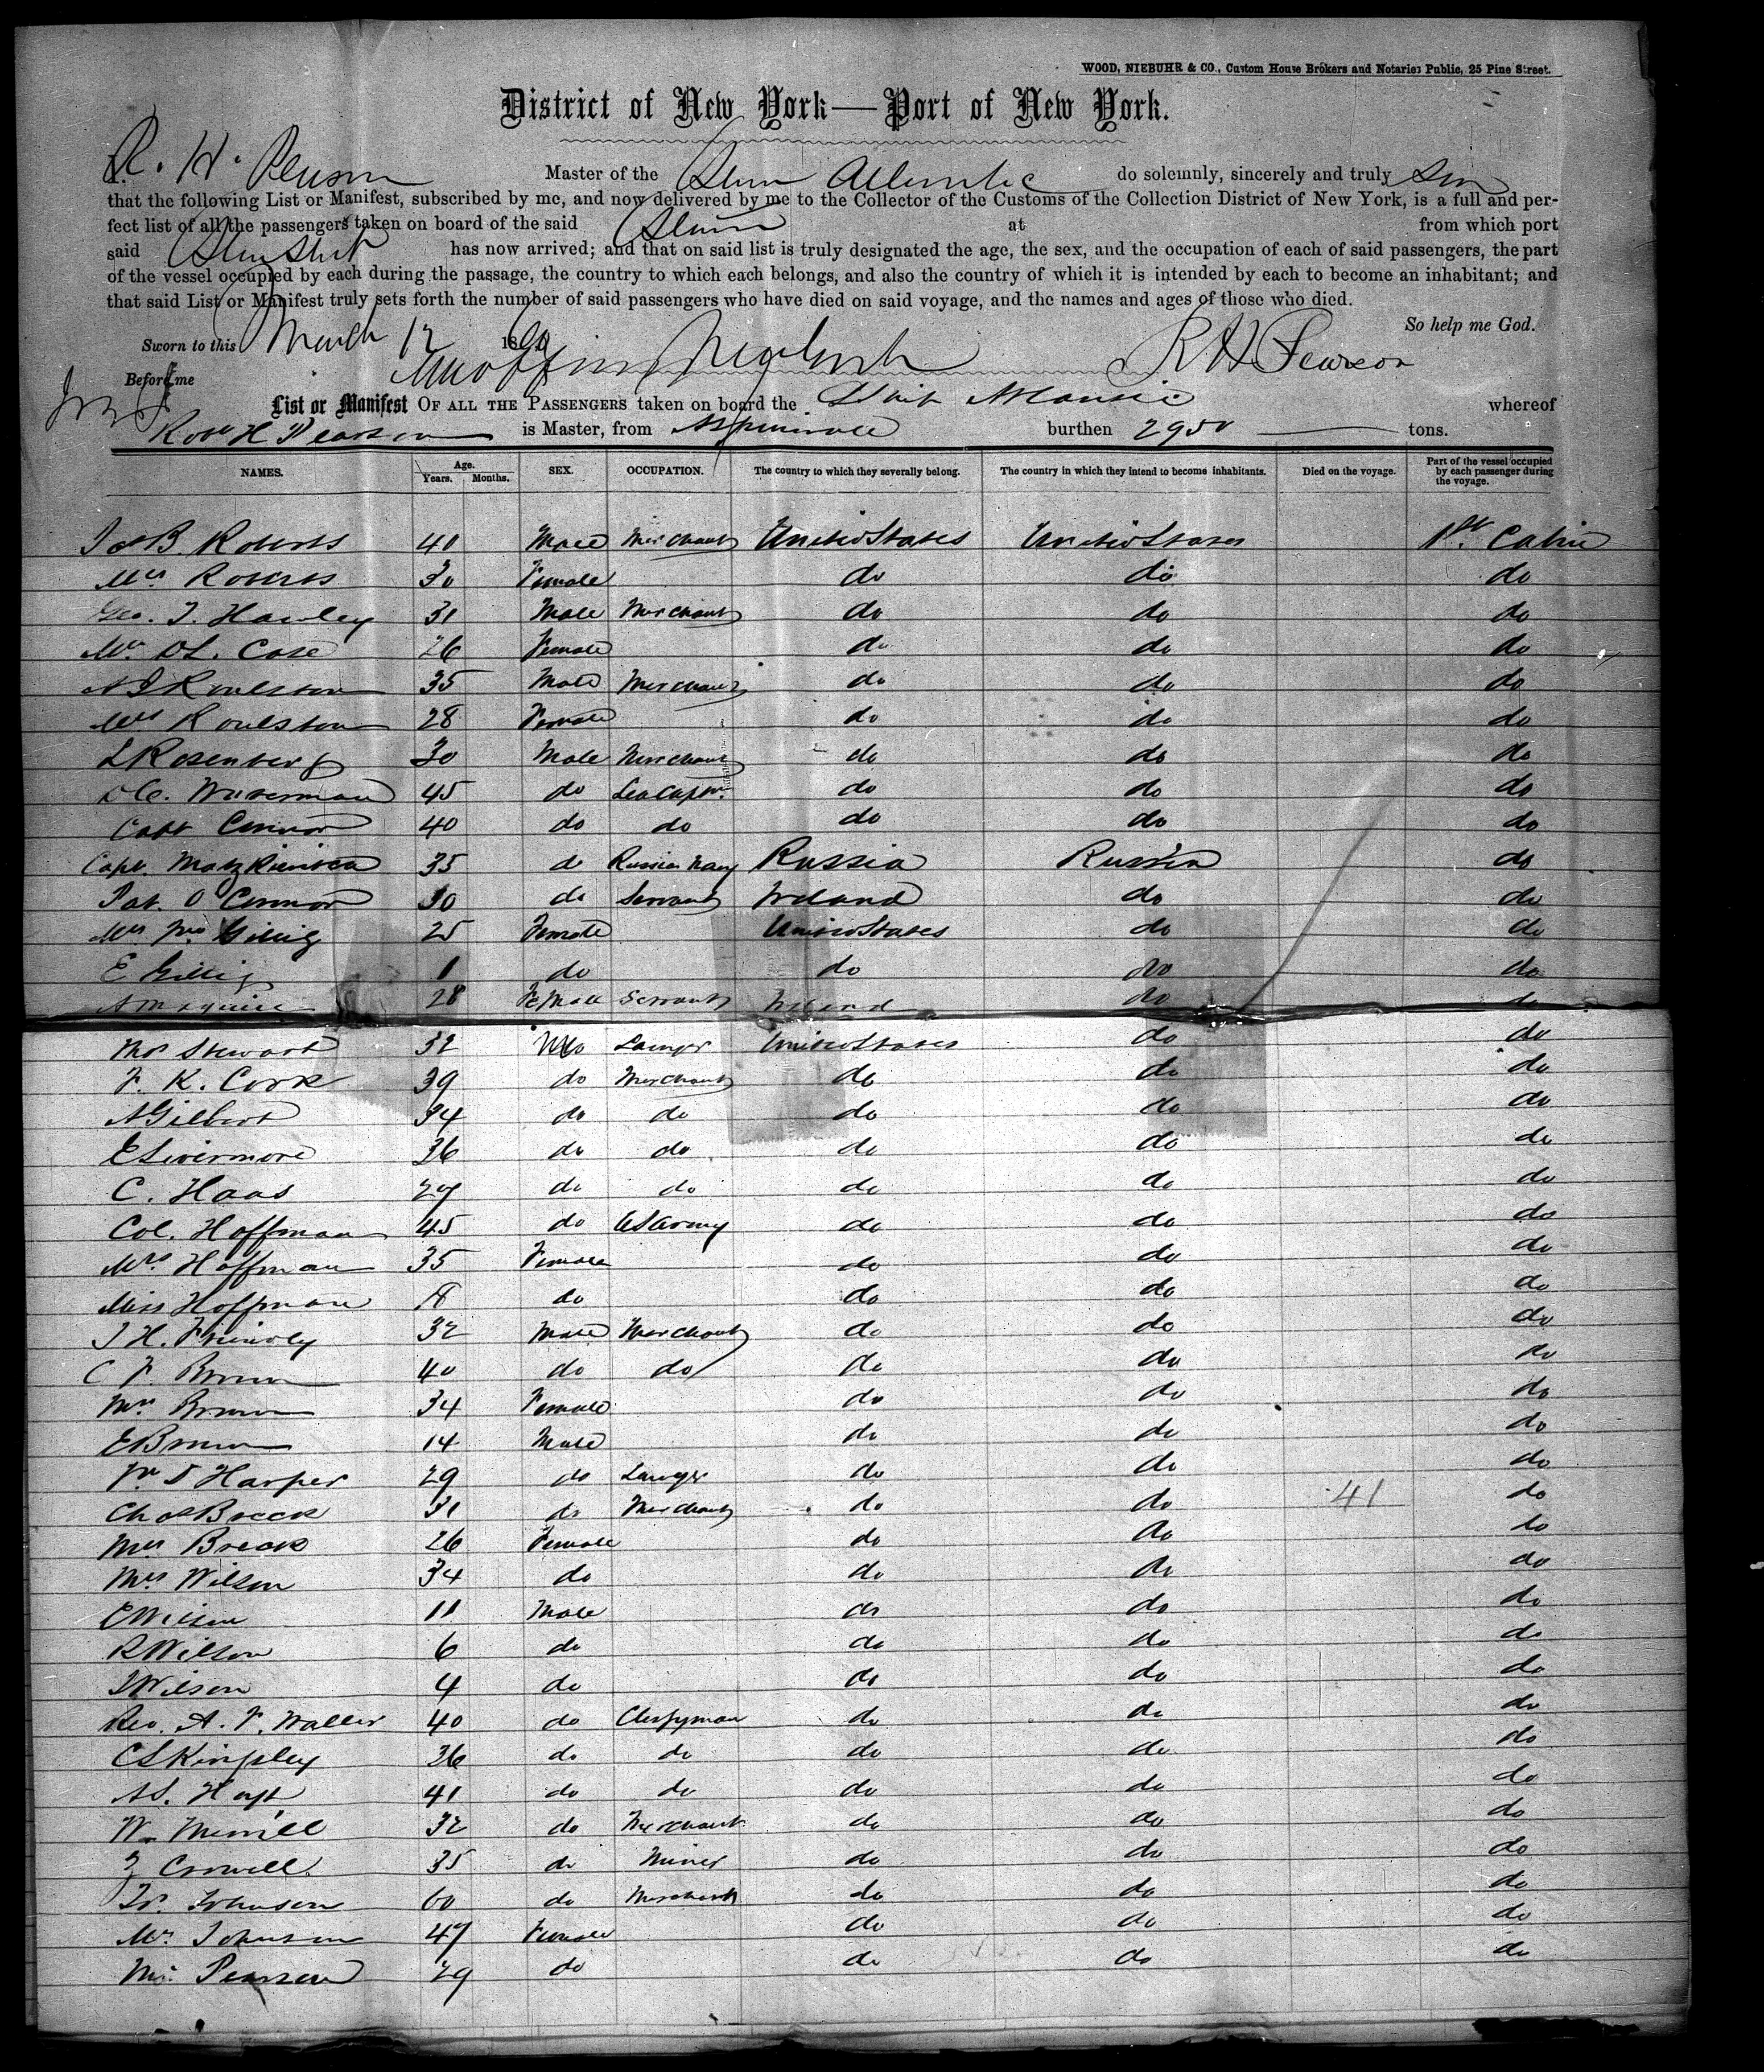 WOOD, NIEBUHR & CO., Custom House Brokers and Notaries Public, 25 Pine Street.
District of New York—Port of New York.
R. H. Pearson Master of the Steam Atlantic do solemnly, sincerely and truly
that the following List or Manifest, subscribed by me, and now delivered by me to the Collector of the Customs of the Collection District of New York, is a full and per-
fect list of all the passengers taken on board of the said at from which port
said Steam Ship has now arrived; and that on said list is truly designated the age, the sex, and the occupation of each of said passengers, the part
of the vessel occupied by each during the passage, the country to which each belongs, and also the country of which it is intended by each to become an inhabitant; and
that said List or Manifest truly sets forth the number of said passengers who have died on said voyage, and the names and ages of those who died.
So help me God.
Sworn to this March 12 18
R H Pearson
Before me
List or Manifest OF ALL THE PASSENGERS taken on board the Ship Atlantic whereof
Robt H Pearson is Master, from Aspinwall burthen 2950 tons.
NAMES. Age. Years. Months. SEX. OCCUPATION. The country to which they severally belong. The country in which they intend to become inhabitants. Died on the voyage. Part of the vessel occupied by each passenger during the voyage.
B. Roberts 40 Male Merchant United States United States 1st Cabin
Mrs Roberts 30 Female do do do
Geo. T. Hawley 31 Male Merchant do do do
Case 26 Female do do do
Roulston 35 Male Merchant do do do
Mrs Roulston 28 Female do do do
L Rosenberg 30 Male Merchant do do do
Waterman 45 do Sea Capt. do do do
Capt Connor 40 do do do do do
Capt. 35 do Russian Navy Russia Russia do
Pat. O Connor 30 do Servant Ireland do do
Mrs Jno Gillig 25 Female United States do do
E Gillig 1 do do do do
A Maguire 28 Female Servant Ireland do do
Thos Stewart 32 Lawyer United States do do
F. K. Cook 39 do Merchant do do do
A Gilbert 34 do do do do do
E Livermore 36 do do do do do
C. Haas 27 do do do do do
Col. Hoffman 45 do US Army do do do
Mrs Hoffman 35 Female do do do
Miss Hoffman 18 do do do do
J H. Friendly 32 Male Merchant do do do
C F. Brown 40 do do do do do
Mrs Brown 34 Female do do do
E Brown 14 Male do do do
Harper 29 do Lawyer do do do
Chas Breck 31 do Merchant do do 41 do
Mrs Breck 26 Female do do do
Mrs Wilson 34 do do do do
E Wilson 11 Male do do do
R Wilson 6 do do do do
J Wilson 4 do do do do
Rev. A. F. Waller 40 do Clergyman do do do
C S Kingsley 36 do do do do do
Hoyt 41 do do do do do
W. Merrill 32 do Merchant do do do
Z Crowell 35 do Miner do do do
Johnson 60 do Merchant do do do
Mrs Johnson 47 Female do do do
Mrs Pearson 29 do do do do